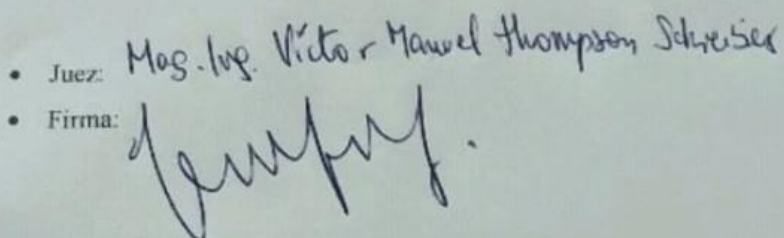 • Juez: Mag. Ing. Víctor Manuel Thompson Schreiber
• Firma: